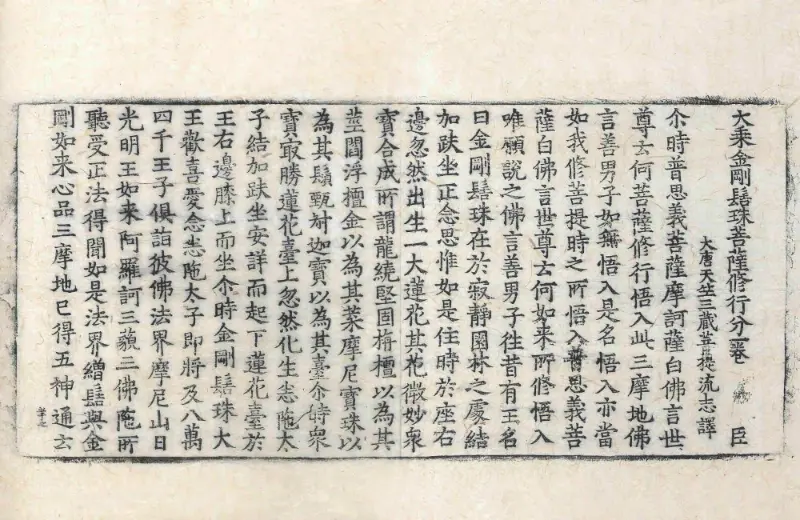 大乘金剛髻珠菩薩修行分一卷 臣
大唐天竺三藏菩提流志譯
尒時普思義菩薩摩訶薩白佛言世
尊云何菩薩修行悟入此三摩地佛
言善男子如無悟入是名悟入亦當
如我修菩提時之所悟入普思義菩
薩白佛言世尊云何如来所修悟入
唯願說之佛言善男子往昔有王名
曰金剛髻珠在於寂靜園林之處結
加趺坐正念思惟如是住時於座右
邊忽然出生一大蓮花其花微妙衆
寶合成所謂龍繞堅固栴檀以為其
莖閻浮檀金以為其葉摩尼寶珠以
為其鬚甄対迦寶以為其臺尒時衆
寶冣勝蓮花臺上忽然化生恚陁太
子結加趺坐安詳而起下蓮花臺於
王右邊膝上而坐尒時金剛髻珠大
王歡喜愛念恚陁太子即將及八萬
四千王子俱詣彼佛法界摩尼山日
光明王如来阿羅訶三藐三佛陁所
聽受正法得聞如是法界繒髻與金
剛如来心品三摩地已得五神通云